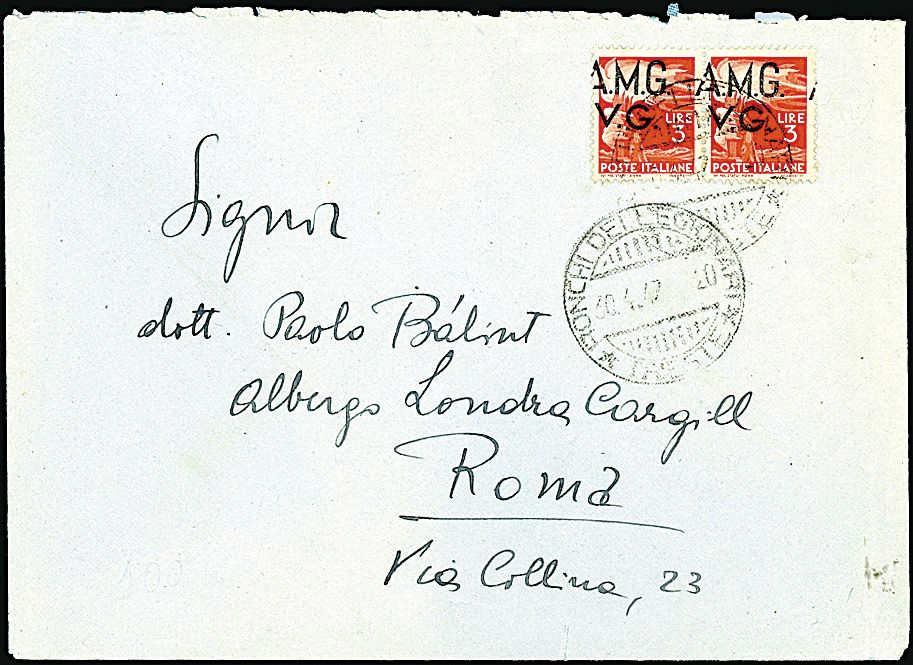 A.M.G. A.M.G.
V.G. V.G.
LIRE LIRE
3 3
POSTE ITALIANE POSTE ITALIANE
Signor
RONCHI DEI LEGIONARI
20
dott. Paolo Bálint
Albergo Londra Cargill
Roma
Via Collina, 23